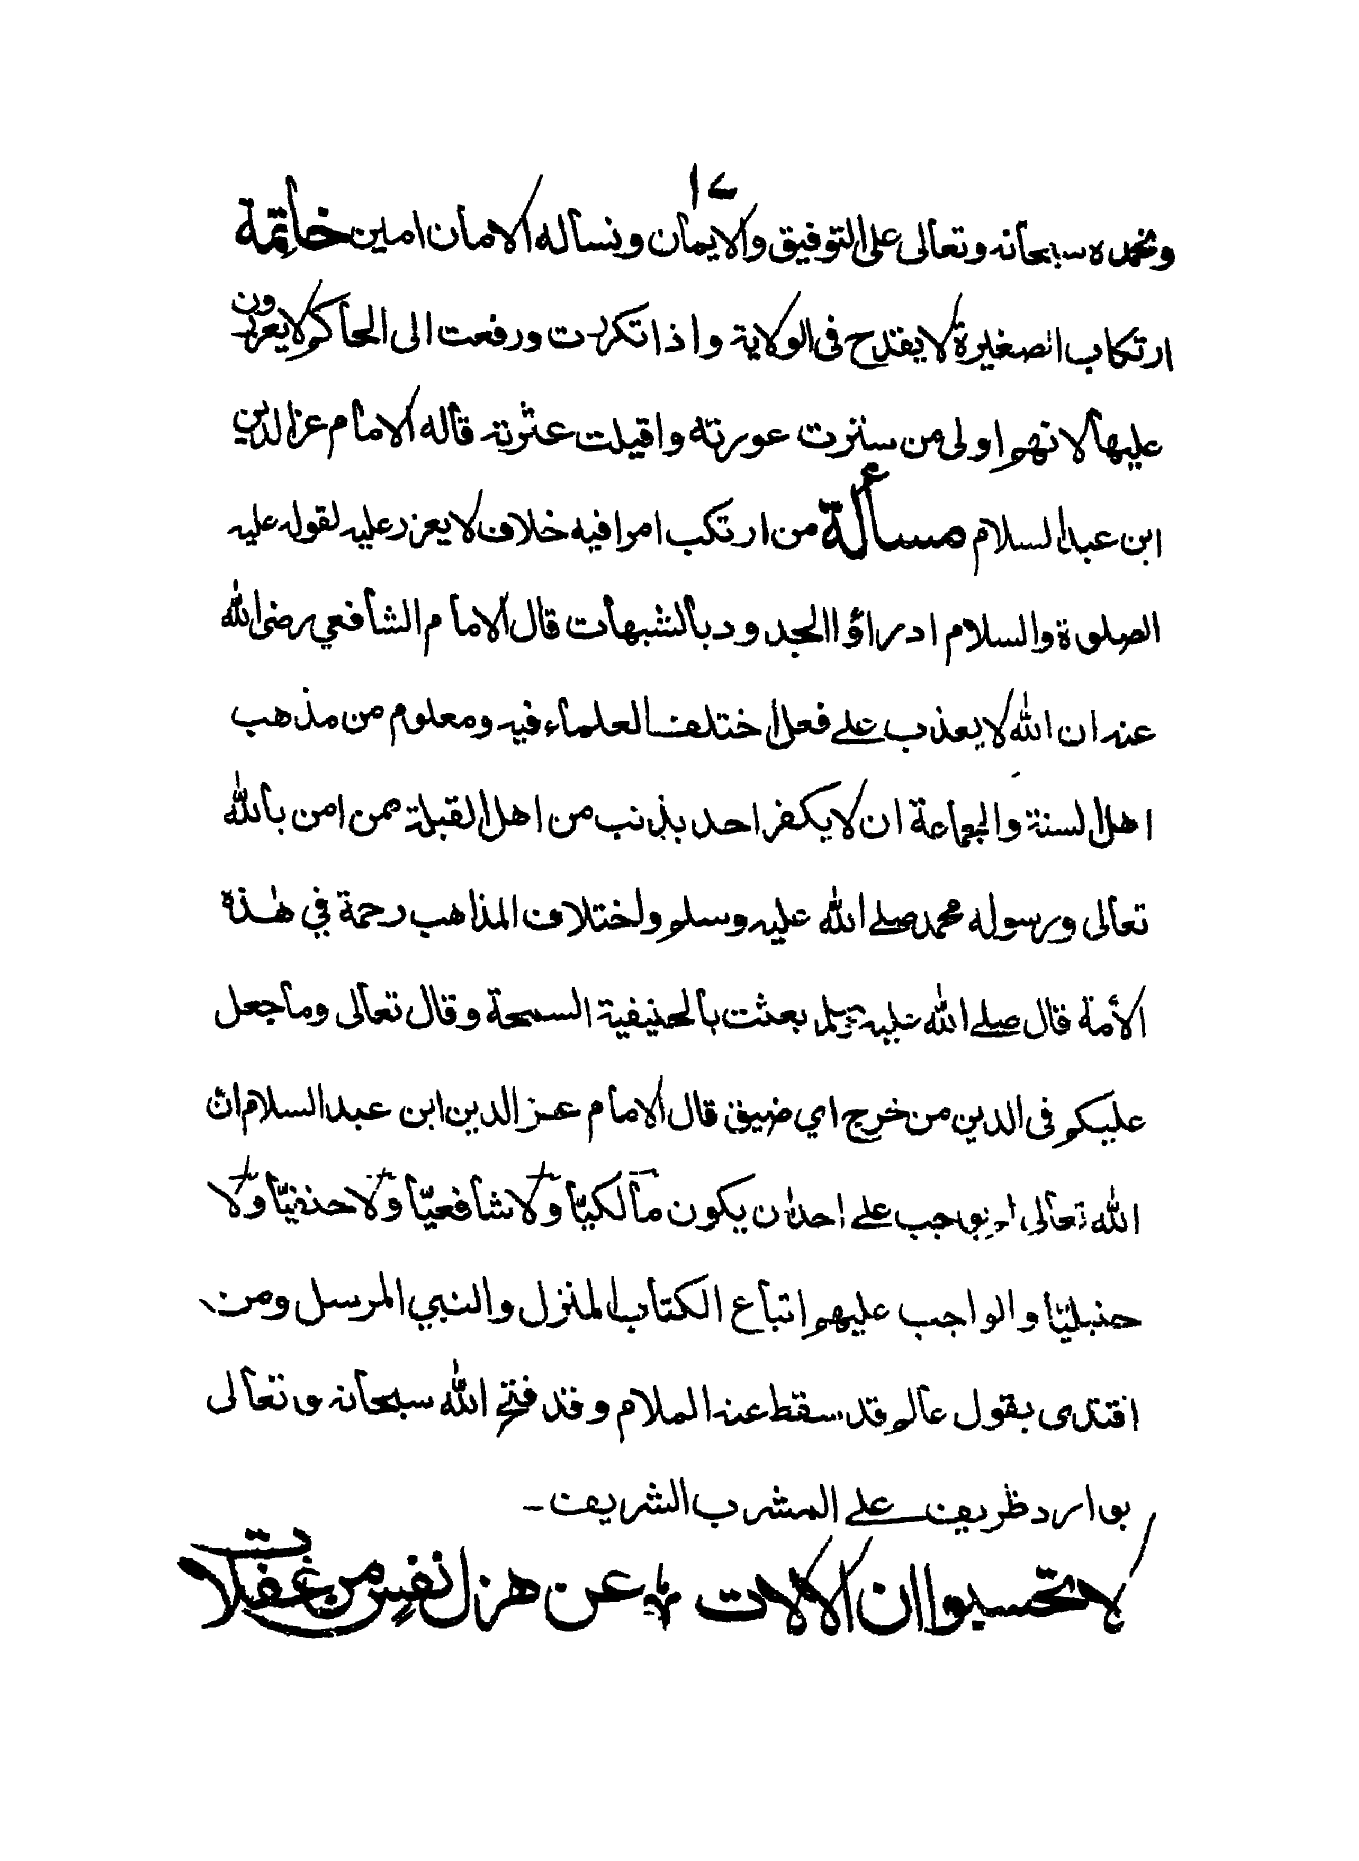 ١٧
ونحمده سبحانه وتعالى على التوفيق والايمان ونسأله الامان امين خاتمة
ارتكاب الصغيرة لا يقدح فى الولاية واذا تكررت ورفعت الى الحاكم لا يعزرون
عليها لانهم اولى من سترت عورته واقيلت عثرته قاله الامام عز الدين
ابن عبد السلام مسألة من ارتكب امرا فيه خلاف لا يعزر عليه لقوله عليه
الصلوة والسلام ادراؤا الحدود بالشبهات قال الامام الشافعي رضى الله
عنه ان الله لا يعذب على فعل اختلف العلماء فيه ومعلوم من مذهب
اهل السنة والجماعة ان لا يكفر احد بذنب من اهل القبلة ممن امن بالله
تعالى ورسوله محمد صلى الله عليه وسلم ولختلاف المذاهب رحمة في هذه
الأمة قال صلى الله عليه وسلم بعثت بالحنيفية السمحة وقال تعالى وما جعل
عليكم فى الدين من خرج اي ضيق قال الامام عز الدين ابن عبد السلام ان
الله تعالى لم يوجب على احد ان يكون مالكيّا ولا شافعيّا ولا حنفيّا ولا
حنبليّا والواجب عليهم اتباع الكتاب المنزل والنبي المرسل ومن
اقتدى بقول عالم قد سقط عنه الملام وقد فتح الله سبحانه وتعالى
بوارد ظريف على المشرب الشريف -
لا تحسبوا ان الالات عن هزل نفس من غفلات